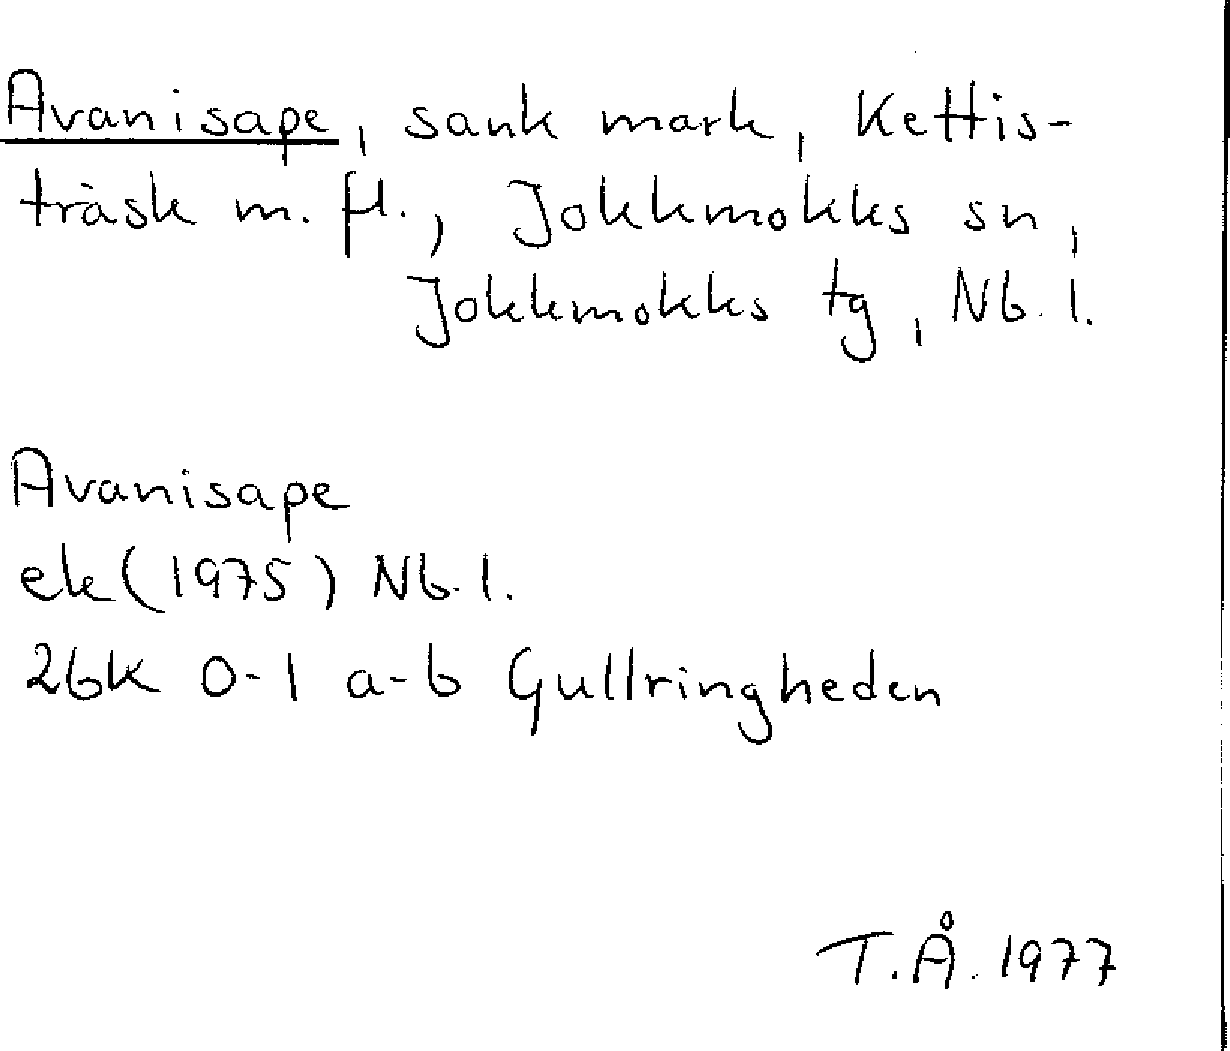 Avanisape, sank mark, Kettis-
träsk m. fl., Jokkmokks sn,
Jokkmokks tg, Nb. l.
Avanisape
ek (1975) Nb. l.
26K 0-1 a-b Gullringheden
T.Å. 1977